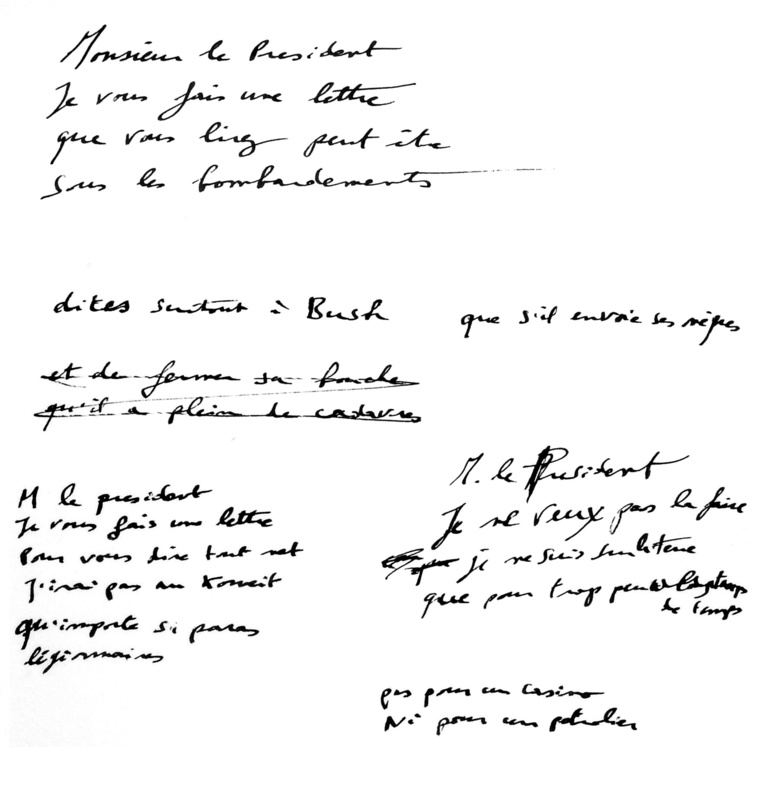 Monsieur le President
Je vous fais une lettre
que vous lirez peut être
sous les bombardements
dites surtout à Bush
que s'il envoie ses nègres
et de fermer sa bouche
qu'il a plein de cadavres
M le president
Je vous fais une lettre
Pour vous dire tout net
J'irai pas au Koweit
qu'importe si paras
légionnaires
M. le President
Je ne veux pas la faire
je ne suis sur terre
que pour trop peu
de temps
pas pour un casino
Ni pour un pétrolier